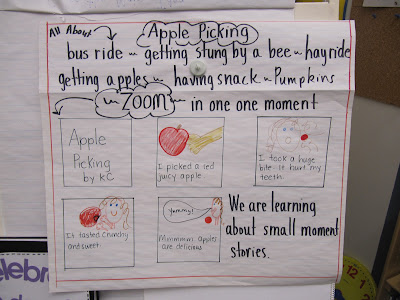 All About
Apple Picking
bus ride ~ getting stung by a bee ~ hayride
getting apples ~ having snack ~ Pumpkins
~ ZOOM ~ in one one moment
Apple
Picking
by KC
I picked a red
juicy apple.
I took a huge
bite. It hurt my
teeth.
It tasted crunchy
and sweet.
Yummy!
Mmmmm apples
are delicious.
We are learning
about small moment
stories.
celebr
12
1